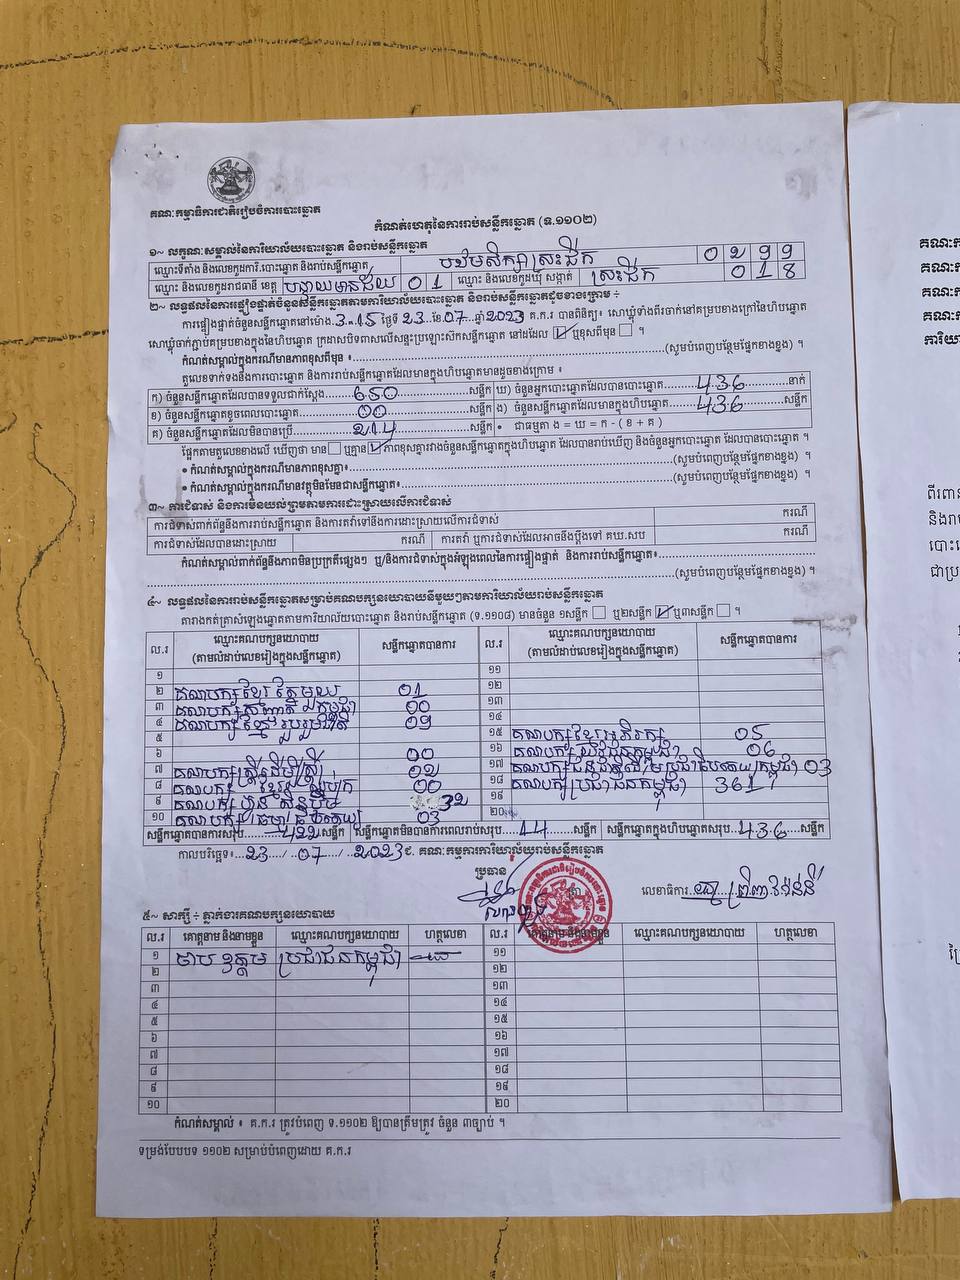 គណៈកម្មាធិការជាតិរៀបចំការបោះឆ្នោត
កំណត់ហេតុនៃការរាប់សន្លឹកឆ្នោត (ទ.១១០២)
១~ លក្ខណៈសម្គាល់នៃការិយាល័យបោះឆ្នោត និងរាប់សន្លឹកឆ្នោត
ឈ្មោះទីតាំង និងលេខកូដការិ.បោះឆ្នោត និងរាប់សន្លឹកឆ្នោត បឋមសិក្សាស្រះជីក 0299
ឈ្មោះ និងលេខកូដរាជធានី ខេត្ត បន្ទាយមានជ័យ 01 ឈ្មោះ និងលេខកូដឃុំ សង្កាត់ ស្រះជីក 018
២~ លទ្ធផលនៃការផ្ទៀងផ្ទាត់ចំនួនសន្លឹកឆ្នោតតាមការិយាល័យបោះឆ្នោត និងរាប់សន្លឹកឆ្នោតដូចខាងក្រោម ÷
ការផ្ទៀងផ្ទាត់ចំនួនសន្លឹកឆ្នោតនៅម៉ោង.3.15 ថ្ងៃទី 23 .ខែ.07 .ឆ្នាំ 2023 គ.ក.រ បានពិនិត្យ៖ សោឃ្លុំទាំងពីរចាក់នៅគម្របខាងក្រៅនៃហិបឆ្នោត
សោឃ្លុំចាក់ភ្ជាប់គម្របខាងក្នុងនៃហិបឆ្នោត ក្រដាសបិទពាសលើសន្ទះប្រឡោះស៊ីកសន្លឹកឆ្នោត នៅដដែល ☑ ឬខុសពីមុន ☐ ។
កំណត់សម្គាល់ក្នុងករណីមានភាពខុសពីមុន ៖ (សូមបំពេញបន្ថែមផ្នែកខាងខ្នង) ។
តួលេខទាក់ទងនឹងការបោះឆ្នោត និងការរាប់សន្លឹកឆ្នោតដែលមានក្នុងហិបឆ្នោតមានដូចខាងក្រោម ៖
ក) ចំនួនសន្លឹកឆ្នោតដែលបានទទួលជាក់ស្តែង 650 សន្លឹក ឃ) ចំនួនអ្នកបោះឆ្នោតដែលបានបោះឆ្នោត 436 នាក់
ខ) ចំនួនសន្លឹកឆ្នោតខូចពេលបោះឆ្នោត 00 សន្លឹក ង) ចំនួនសន្លឹកឆ្នោតដែលមានក្នុងហិបឆ្នោត 436 សន្លឹក
គ) ចំនួនសន្លឹកឆ្នោតដែលមិនបានប្រើ 214 សន្លឹក • ជាធម្មតា ង = ឃ = ក - ( ខ + គ )
ផ្អែកតាមតួលេខខាងលើ ឃើញថា មាន ☐ ឬគ្មាន ☑ ភាពខុសគ្នារវាងចំនួនសន្លឹកឆ្នោតក្នុងហិបឆ្នោត ដែលបានរាប់ឃើញ និងចំនួនអ្នកបោះឆ្នោត ដែលបានបោះឆ្នោត ។
• កំណត់សម្គាល់ក្នុងករណីមានភាពខុសគ្នា៖ (សូមបំពេញបន្ថែមផ្នែកខាងខ្នង) ។
• កំណត់សម្គាល់ក្នុងករណីមានវត្ថុមិនមែនជាសន្លឹកឆ្នោត៖ (សូមបំពេញបន្ថែមផ្នែកខាងខ្នង) ។
៣~ ការជំទាស់ និងការមិនយល់ព្រមតាមការដោះស្រាយលើការជំទាស់
ការជំទាស់ពាក់ព័ន្ធនឹងការរាប់សន្លឹកឆ្នោត និងការតវ៉ាទៅនឹងការដោះស្រាយលើការជំទាស់ ករណី
ការជំទាស់ដែលបានដោះស្រាយ ករណី ការតវ៉ា ឬការជំទាស់ដែលអាចនឹងប្តឹងទៅ គឃ.សប ករណី
កំណត់សម្គាល់ពាក់ព័ន្ធនឹងភាពមិនប្រក្រតីផ្សេងៗ ឬ/និងការជំទាស់ក្នុងអំឡុងពេលនៃការផ្ទៀងផ្ទាត់ និងការរាប់សន្លឹកឆ្នោត៖
(សូមបំពេញបន្ថែមផ្នែកខាងខ្នង) ។
៤~ លទ្ធផលនៃការរាប់សន្លឹកឆ្នោតសម្រាប់គណបក្សនយោបាយនីមួយៗតាមការិយាល័យរាប់សន្លឹកឆ្នោត
តារាងកត់ត្រាសំឡេងឆ្នោតតាមការិយាល័យបោះឆ្នោត និងរាប់សន្លឹកឆ្នោត (ទ.១១០៨) មានចំនួន ១សន្លឹក ☐ ឬ២សន្លឹក ☑ ឬ៣សន្លឹក ☐ ។
ល.រ ឈ្មោះគណបក្សនយោបាយ (តាមលំដាប់លេខរៀងក្នុងសន្លឹកឆ្នោត) សន្លឹកឆ្នោតបានការ ល.រ ឈ្មោះគណបក្សនយោបាយ (តាមលំដាប់លេខរៀងក្នុងសន្លឹកឆ្នោត) សន្លឹកឆ្នោតបានការ
១ ១១
២ គណបក្សខ្មែរតែមួយ 01 ១២
៣ គណបក្សសញ្ជាតិកម្ពុជា 00 ១៣
៤ គណបក្សខ្មែររួបរួមជាតិ 09 ១៤
៥ ១៥ គណបក្សខ្មែរអភិរក្ស 05
៦ 00 ១៦ គណបក្សយុវជនកម្ពុជា 06
៧ គណបក្សស្ត្រីដើម្បីស្ត្រី 02 ១៧ គណបក្សជនជាតិដើមប្រជាធិបតេយ្យកម្ពុជា 03
៨ 00 ១៨ គណបក្សប្រជាជនកម្ពុជា 361
៩ គណបក្សហ៊្វុនស៊ិនប៉ិច 32 ១៩
១០ គណបក្សធម្មាធិបតេយ្យ 03 ២០
សន្លឹកឆ្នោតបានការសរុប 422 សន្លឹក សន្លឹកឆ្នោតមិនបានការពេលរាប់សរុប 14 សន្លឹក សន្លឹកឆ្នោតក្នុងហិបឆ្នោតសរុប 436 សន្លឹក
កាលបរិច្ឆេទ៖ 23 / 07 / 2023 ជ. គណៈកម្មការការិយាល័យរាប់សន្លឹកឆ្នោត
ប្រធាន
លេខាធិការ
៥~ សាក្សី ÷ ភ្នាក់ងារគណបក្សនយោបាយ
ល.រ គោត្តនាម និងនាមខ្លួន ឈ្មោះគណបក្សនយោបាយ ហត្ថលេខា ល.រ គោត្តនាម និងនាមខ្លួន ឈ្មោះគណបក្សនយោបាយ ហត្ថលេខា
១ ចាប ឧត្តម ប្រជាជនកម្ពុជា ១១
២ ១២
៣ ១៣
៤ ១៤
៥ ១៥
៦ ១៦
៧ ១៧
៨ ១៨
៩ ១៩
១០ ២០
កំណត់សម្គាល់ ៖ គ.ក.រ ត្រូវបំពេញ ទ.១១០២ ឱ្យបានត្រឹមត្រូវ ចំនួន ៣ច្បាប់ ។
ទម្រង់បែបបទ ១១០២ សម្រាប់បំពេញដោយ គ.ក.រ